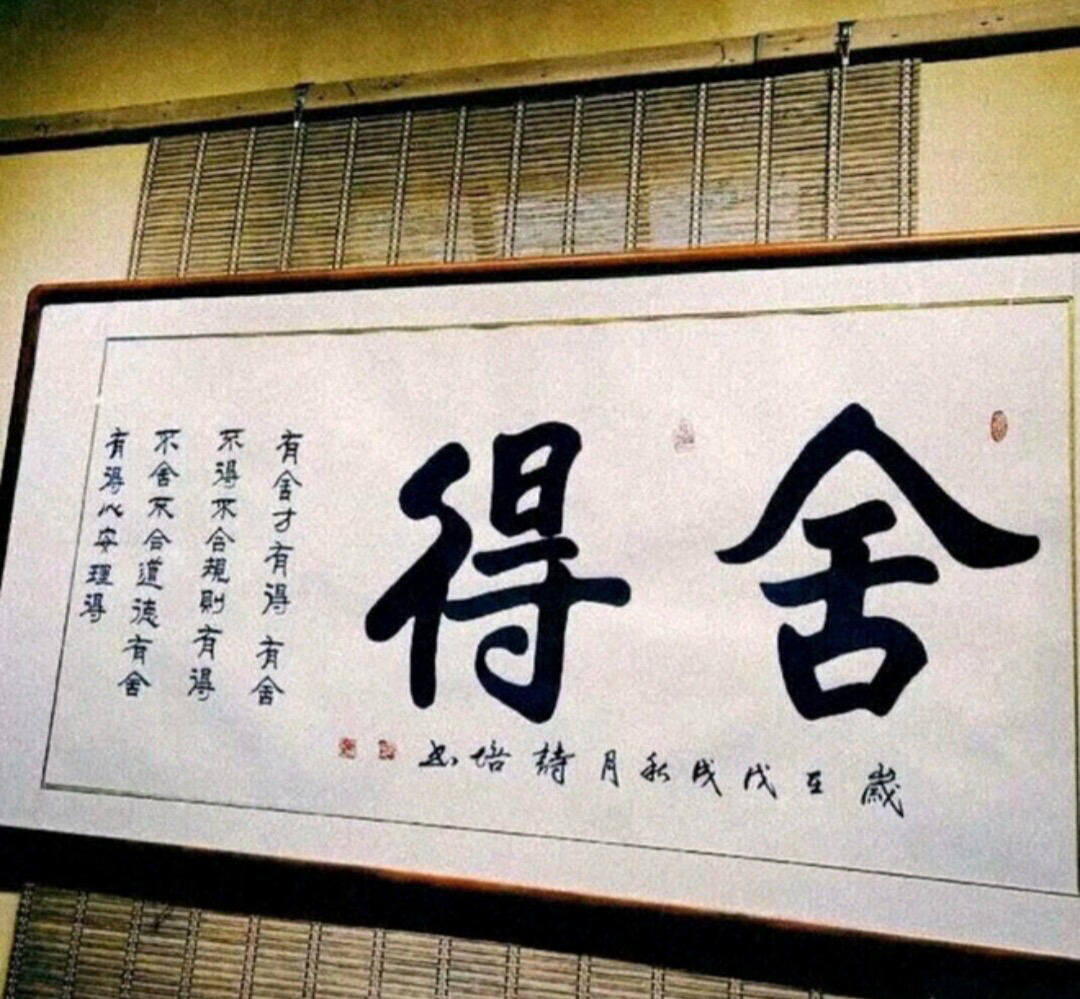 舍得
有舍才有得 有舍
不得不合規則有得
不舍不合道德有舍
有得心安理得
歲在戊戌秋月詩培书